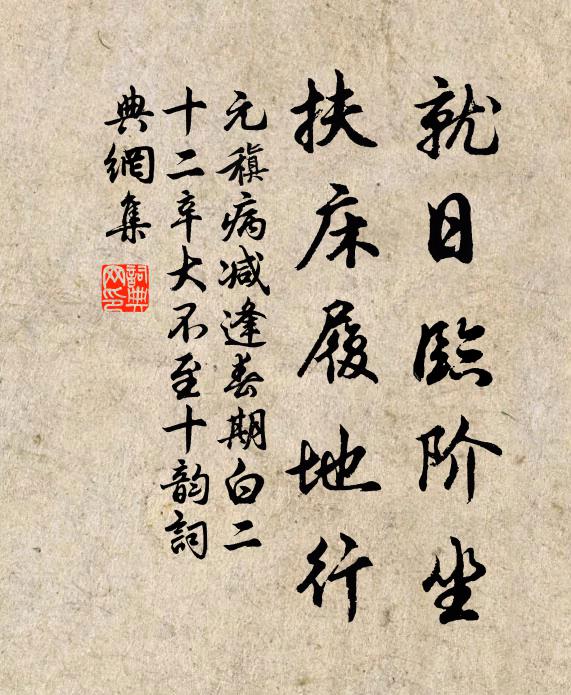 就日臨阶坐
扶床履地行
元稹病减逢春期白二
十二辛大不至十韵詞
典網集
詞典網印